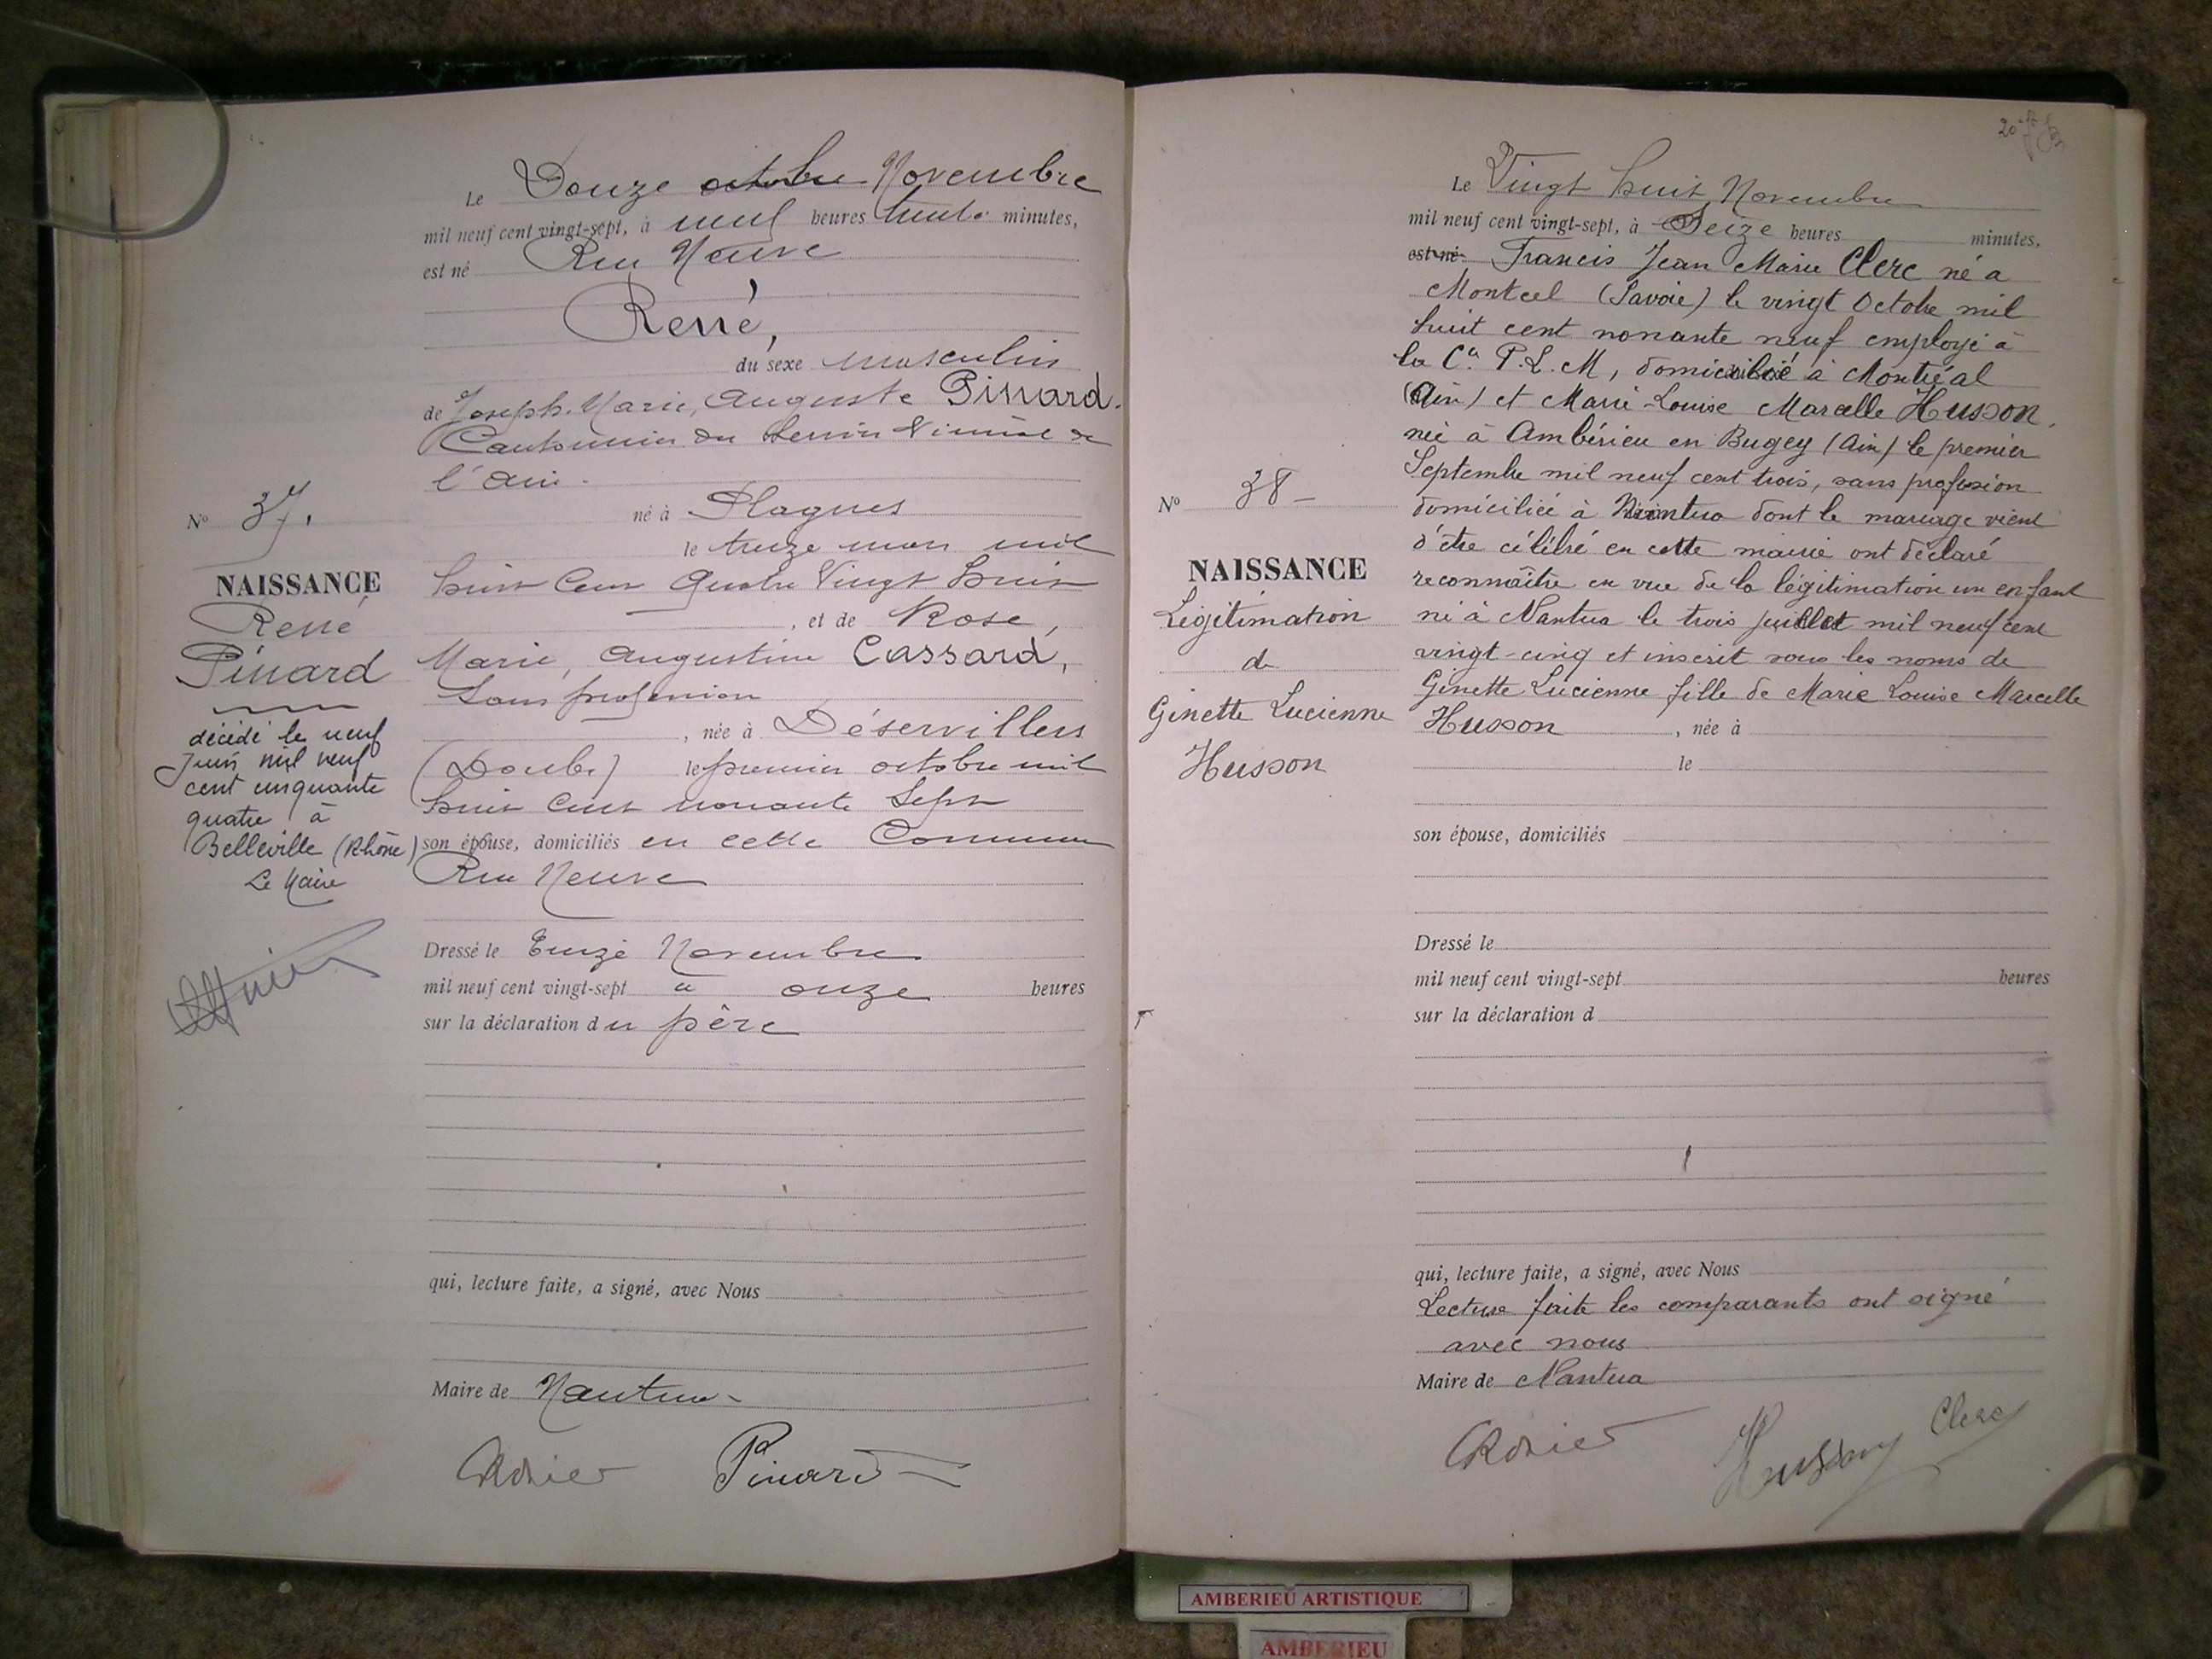 Le Douze octobre Novembre
mil neuf cent vingt-sept, à neuf heures trente minutes,
est né Rue Neuve
René,
du sexe masculin
de Joseph. Marie, Auguste Pinard.
Cantonnier du Service Vicinal de
l'Ain.
né à Plagnes
le treize mars mil
huit Cent Quatre Vingt huit
, et de Rose,
Marie, Augustine Cassard,
Sans profession
, née à Déservillers
(Doubs) le premier octobre mil
huit Cent nonante Sept
son épouse, domiciliés en cette Commune
Rue Neuve
Dressé le Treize Novembre
mil neuf cent vingt-sept à onze heures
sur la déclaration du père
qui, lecture faite, a signé, avec Nous
Maire de Nantua
Pinard
No 37.
NAISSANCE
René
Pinard
décédé le neuf
Juin mil neuf
cent cinquante
quatre à
Belleville (Rhône)
Le Maire
20
Le Vingt huit Novembre
mil neuf cent vingt-sept, à Seize heures minutes,
est né Francis Jean Marie Clerc né à
Montcel (Savoie) le vingt Octobre mil
huit cent nonante neuf employé à
la Cie P.L.M, domicilié à Montréal
(Ain) et Marie-Louise Marcelle Husson,
née à Ambérieu en Bugey (Ain) le premier
Septembre mil neuf cent trois, sans profession
domiciliée à Nantua dont le mariage vient
d'être célébré en cette mairie ont déclaré
reconnaître en vue de la légitimation un enfant
né à Nantua le trois juillet mil neuf cent
vingt-cinq et inscrit sous les noms de
Ginette Lucienne fille de Marie Louise Marcelle
Husson , née à
le
son épouse, domiciliés
Dressé le
mil neuf cent vingt-sept heures
sur la déclaration d
qui, lecture faite, a signé, avec Nous
Lecture faite les comparants ont signé
avec nous
Maire de Nantua
Husson Clerc
No 38-
NAISSANCE
Légitimation
de
Ginette Lucienne
Husson
AMBERIEU ARTISTIQUE
AMBERIEU